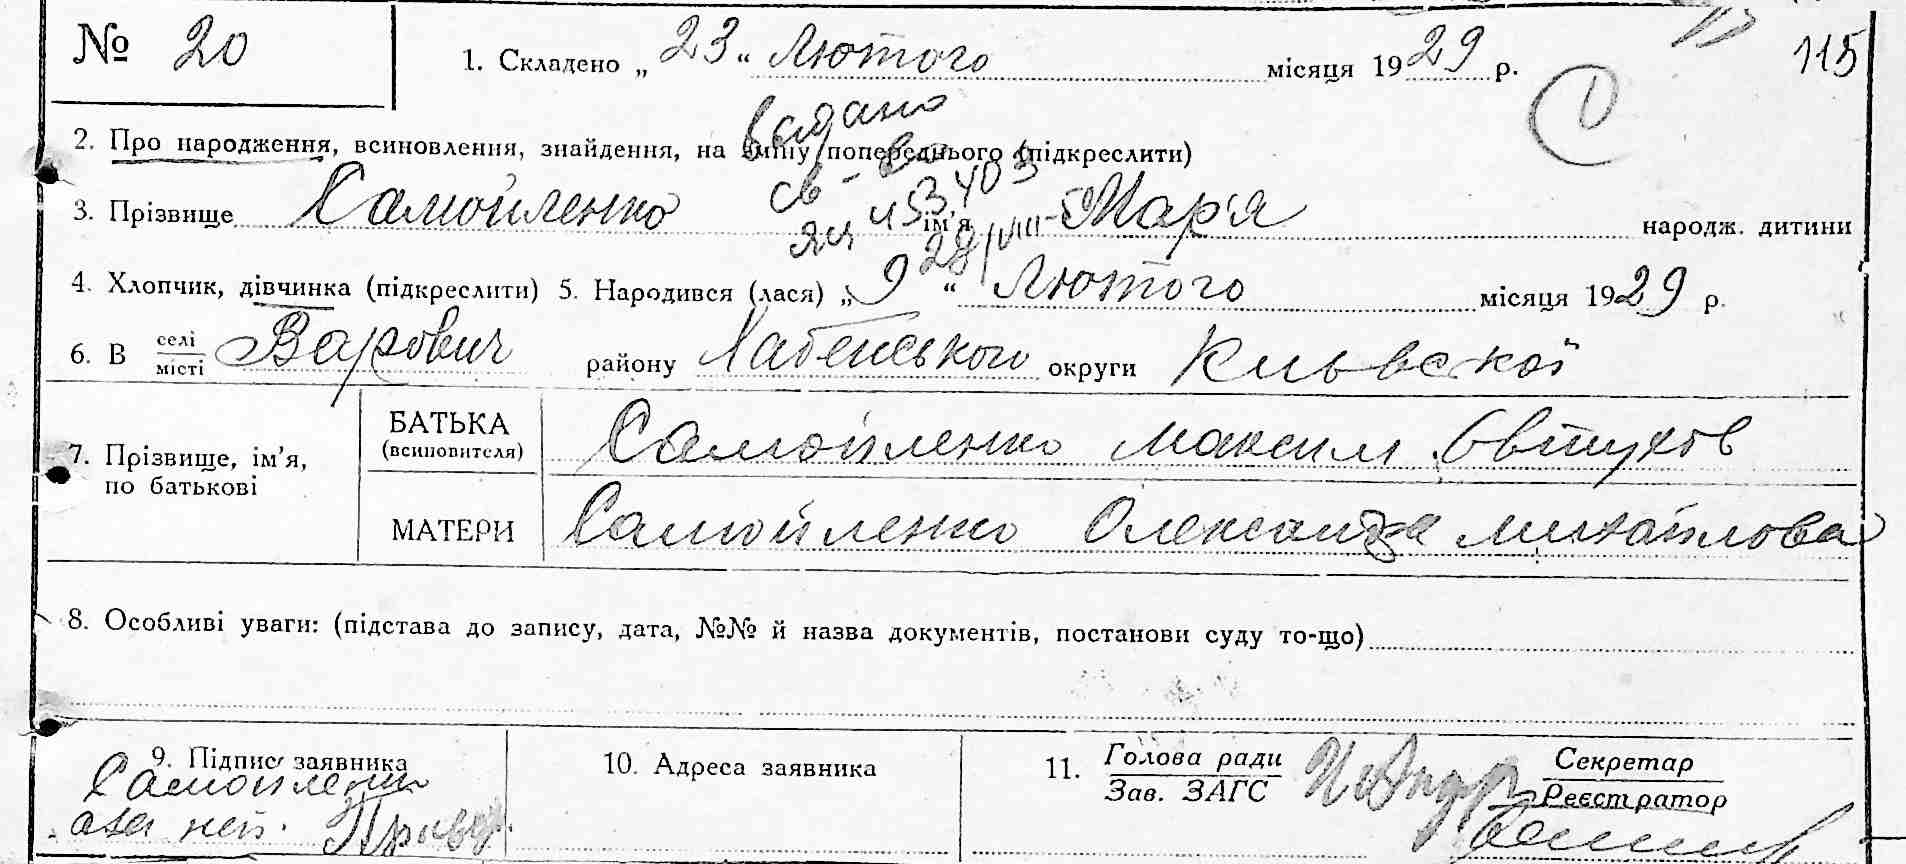 № 20
1. Складено „ 23 “ Лютого місяця 1929 р.
115
видано
2. Про народження, всиновлення, знайдення, на зміну попереднього (підкреслити)
св-во
3. Прізвище Самойленко ім'я Мар'я народж. дитини
28/VIII-
4. Хлопчик, дівчинка (підкреслити) 5. Народився (лася) „ 9 “ Лютого місяця 1929 р.
6. В селі місті Варович району Хабенського округи Київської
7. Прізвище, ім'я, по батькові
БАТЬКА (всиновителя) Самойленко Максим Овтухов
МАТЕРИ Самойленко Олександра Михайлова
8. Особливі уваги: (підстава до запису, дата, №№ й назва документів, постанови суду то-що)
9. Підпис заявника
Самойленко
10. Адреса заявника
11. Голова ради
Зав. ЗАГС
Секретар
Реєстратор